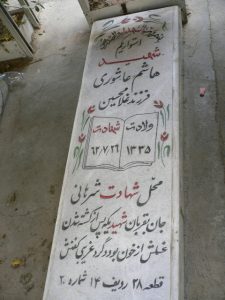 استواریم
شهید
هاشم عاشوری
فرزند غلامحسین
ولادت شهادت
۱۳۳۵ ۶۲/۷/۲۶
محل شهادت شرهانی
جان بقربان شهید یکه پس از کشته شدن
غسلش از خون بود و گرد غریبی کفنش
قطعه ۲۸ ردیف ۱۴ شماره ۲۰